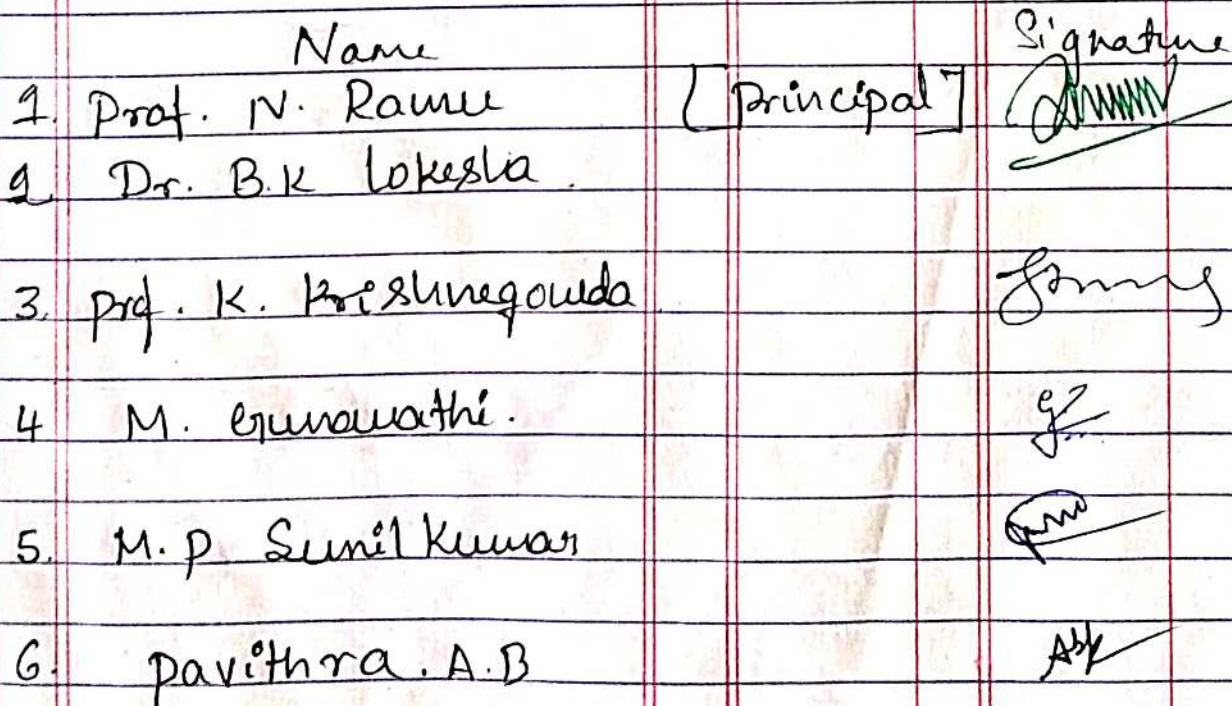 Name Signature
1. Prof. N. Ramu [Principal]
2 Dr. B.K Lokesha.
3. Prof. K. Krishnegowda
4 M. Gunavathi.
5. M.P. Sunil Kumar
6. Pavithra.A.B